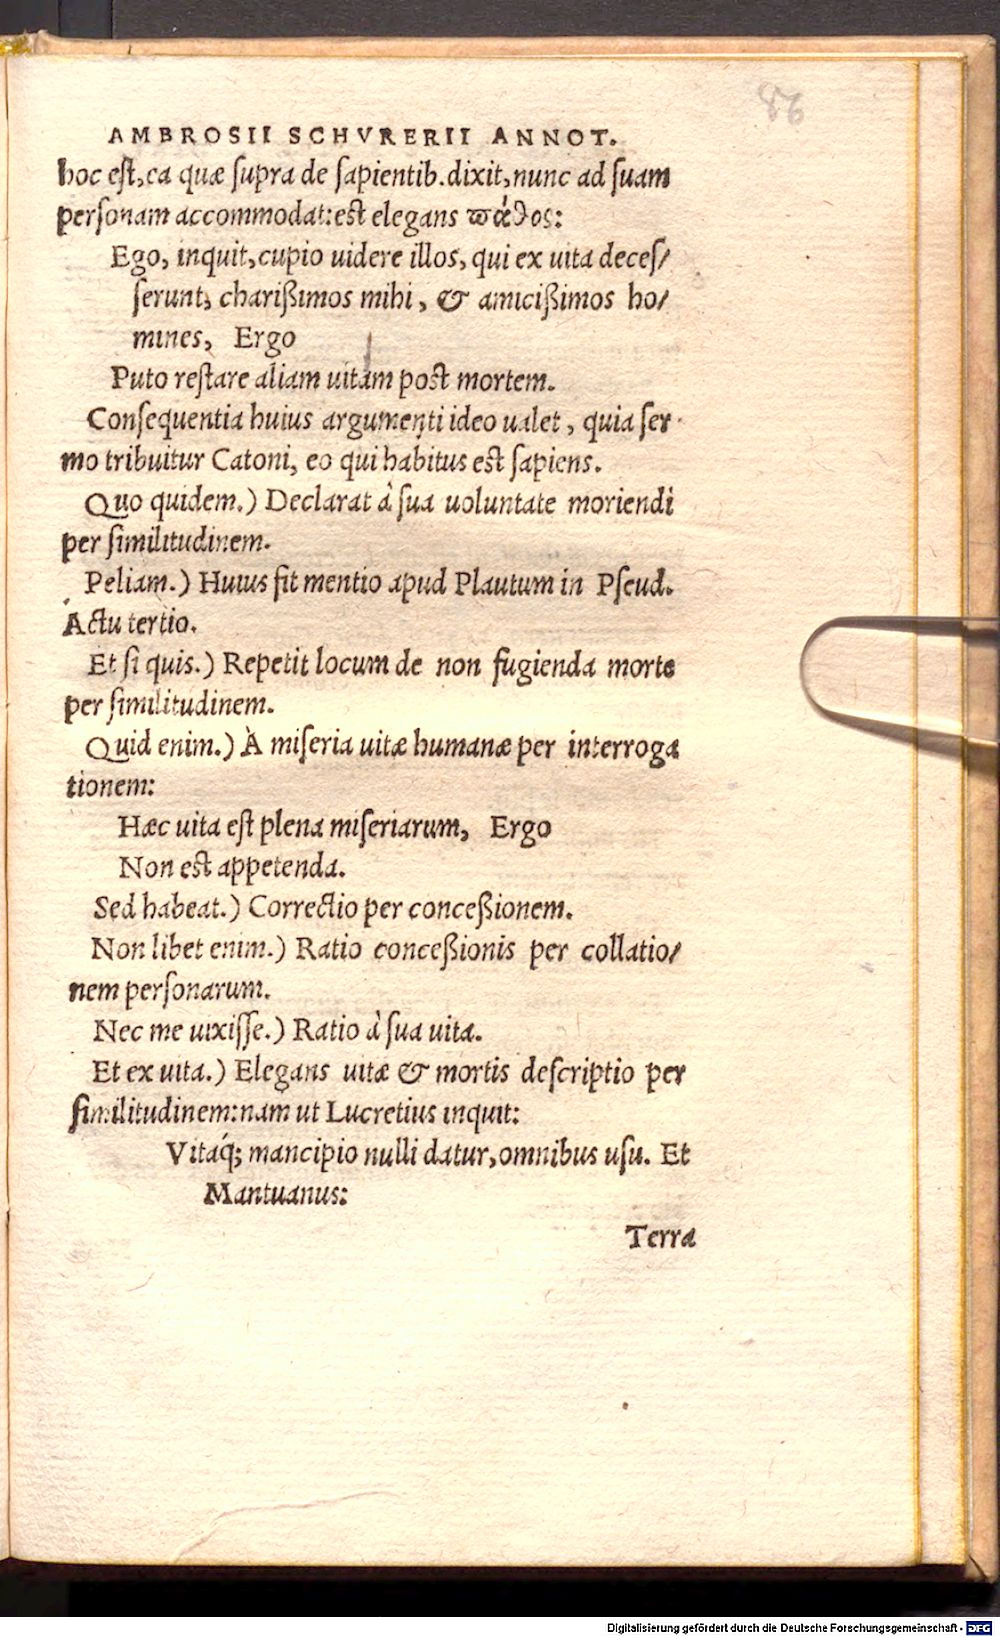 86
AMBROSII SCHVRERII ANNOT.
hoc est, ea quæ supra de sapientib. dixit, nunc ad suam
personam accommodat: est elegans πάθος:
Ego, inquit, cupio uidere illos, qui ex uita deces/
serunt, charißimos mihi, & amicißimos ho/
mines, Ergo
Puto restare aliam uitam post mortem.
Consequentia huius argumenti ideo ualet, quia ser
mo tribuitur Catoni, eo qui habitus est sapiens.
Quo quidem.) Declarat à sua uoluntate moriendi
per similitudinem.
Peliam.) Huius fit mentio apud Plautum in Pseud.
Actu tertio.
Et si quis.) Repetit locum de non fugienda morte
per similitudinem.
Quid enim.) A miseria uitæ humanæ per interroga
tionem:
Hæc uita est plena miseriarum, Ergo
Non est appetenda.
Sed habeat.) Correctio per conceßionem.
Non libet enim.) Ratio conceßionis per collatio/
nem personarum.
Nec me uixisse.) Ratio à sua uita.
Et ex uita.) Elegans uitæ & mortis descriptio per
similitudinem: nam ut Lucretius inquit:
Vitaq́; mancipio nulli datur, omnibus usu. Et
Mantuanus:
Terra
Digitalisierung gefördert durch die Deutsche Forschungsgemeinschaft - DFG